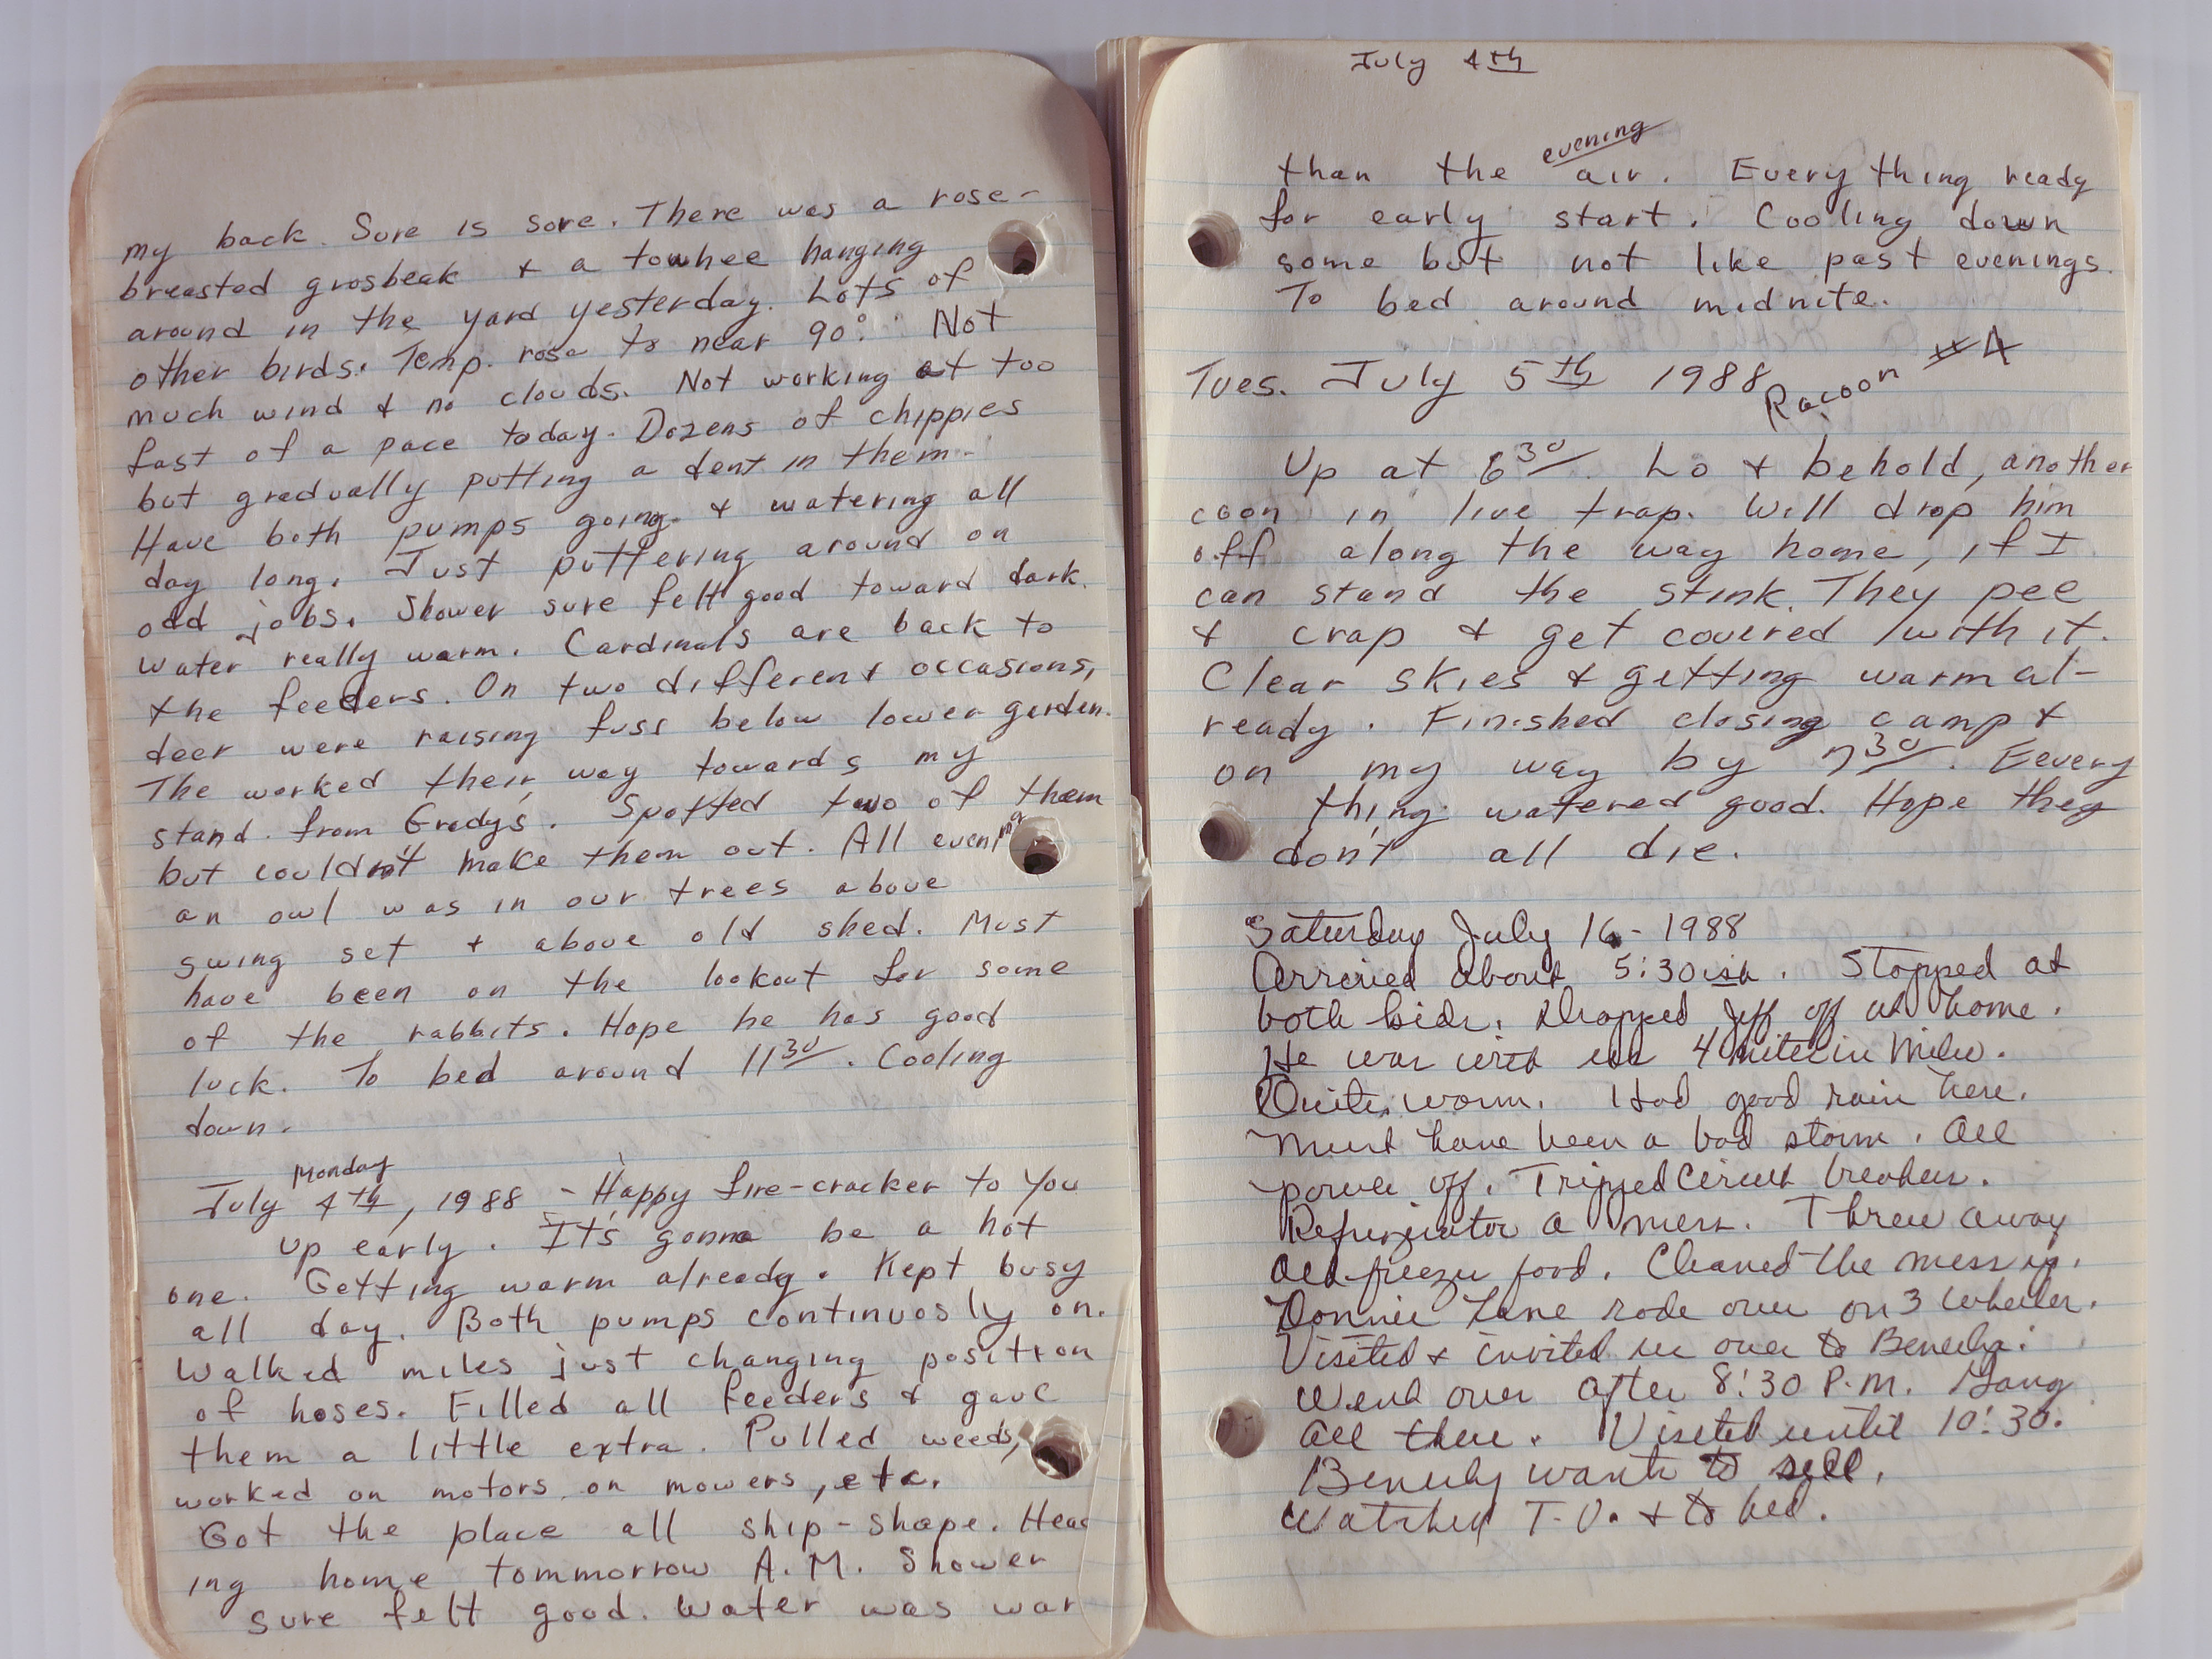 my back. Sure is sore. There was a rose-
breasted grosbeak & a towhee hanging
around in the yard yesterday. Lots of
other birds. Temp. rose to near 90°. Not
much wind & no clouds. Not working at too
fast of a pace today. Dozens of chippies
but gradually putting a dent in them.
Have both pumps going & watering all
day long. Just puttering around on
odd jobs. Shower sure felt good toward dark.
Water really warm. Cardinals are back to
the feeders. On two different occasions,
deer were raising fuss below lower garden.
The worked their way towards my
stand from Grady's. Spotted two of them
but couldn't make them out. All evening
an owl was in our trees above
swing set & above old shed. Must
have been on the lookout for some
of the rabbits. Hope he has good
luck. To bed around 11 30. Cooling
down.
Monday
July 4th, 1988 - Happy fire-cracker to you
Up early. It's gonna be a hot
one. Getting warm already. Kept busy
all day. Both pumps continuosly on.
Walked miles just changing position
of hoses. Filled all feeders & gave
them a little extra. Pulled weeds,
worked on motors on mowers, etc.
Got the place all ship-shape. Head
ing home tommorrow A.M. Shower
sure felt good. Water was war
July 4th
evening
than the air. Everything ready
for early start. Cooling down
some but not like past evenings.
To bed around midnite.
Tues. July 5th 1988 Racoon #4
Up at 6 30. Lo & behold, another
coon in live trap. Will drop him
off along the way home, if I
can stand the stink. They pee
& crap & get covered with it.
Clear skies & getting warm al-
ready. Finished closing camp &
on my way by 7 30. Eevery
thing watered good. Hope they
don't all die.
Saturday July 16 - 1988
Arrived about 5:30ish. Stopped at
both kids. Dropped Jeff off at home.
He was with us 4 nites in Milw.
Quite warm. Had good rain here.
Must have been a bad storm. All
power off. Tripped Circuit breakers.
Refrigerator a mess. Threw away
all freezer food. Cleaned the mess up.
Donnie Lane rode over on 3 Wheeler.
Visited & invited us over to Beverly's.
Went over after 8:30 P.M. Gang
all there. Visited until 10:30.
Beverly wants to sell.
Watched T.V. & to bed.